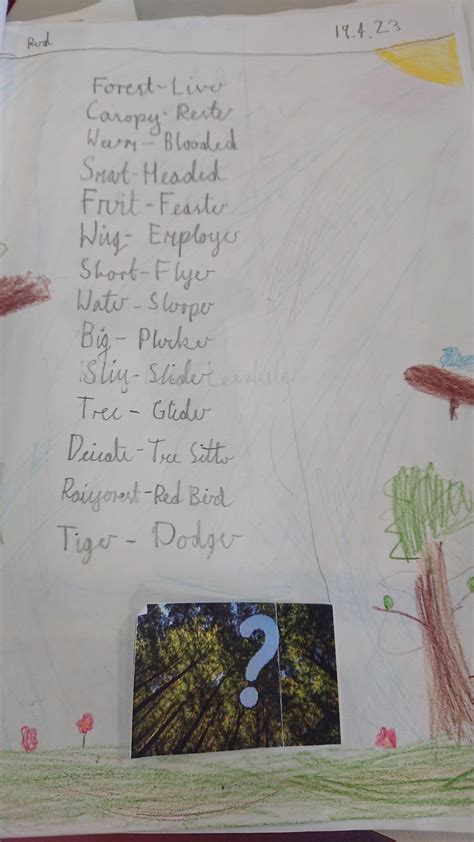 Rvd
17.4.23
Forest-Liver
Canopy-Rester
Warm-Blooded
Smart-Headed
Fruit-Feaster
Wing-Employer
Short-Flyer
Water-Slurper
Big-Plucker
Slider
Tree-Glider
Delicate-Tree Sitter
Rainforest-Red Bird
Tiger-Dodger
?